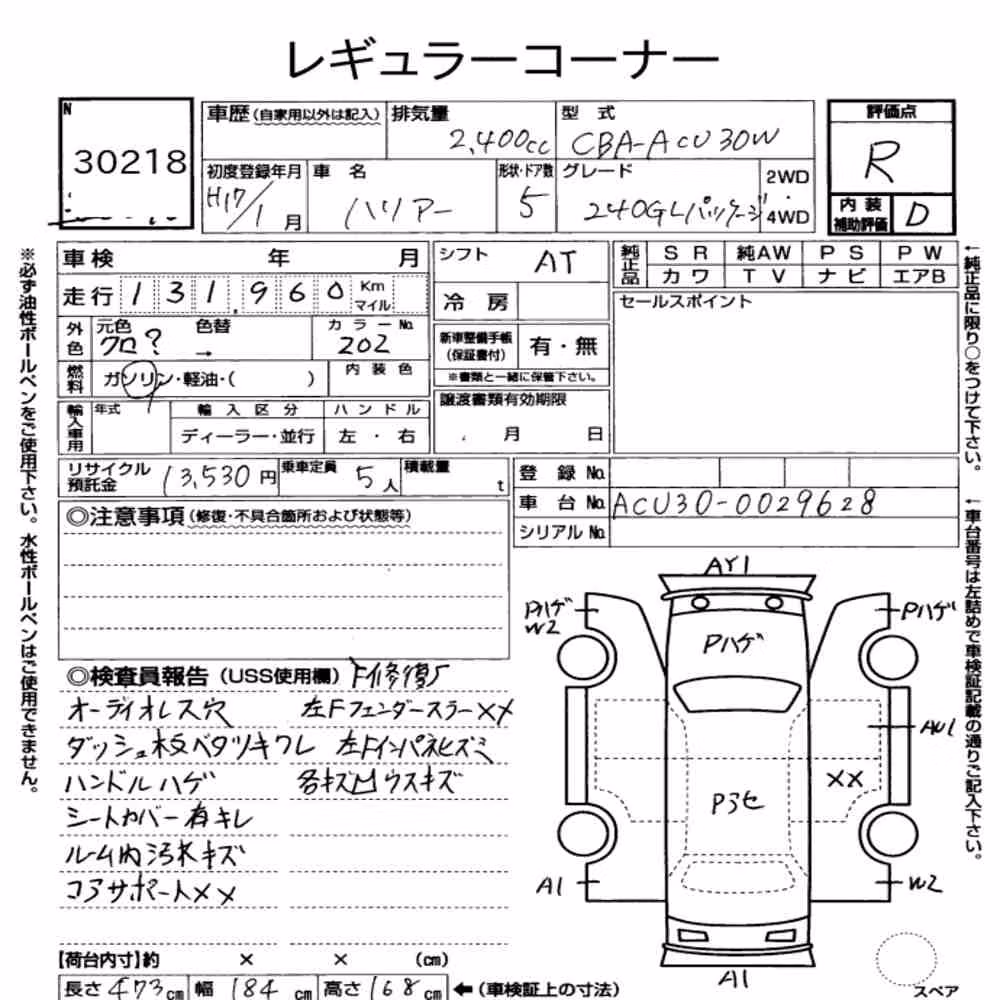 レギュラーコーナー
N
30218
車歴（自家用以外は記入）
排気量
2,400cc
型式
CBA-ACU30W
評価点
R
初度登録年月
H17/1月
車名
ハリアー
形状・ドア数
5
グレード
240GLパッケージ
2WD
・
4WD
内装
補助評価
D
車検 年 月
シフト
AT
純正品
SR 純AW PS PW
カワ TV ナビ エアB
走行 131,960 Km
マイル
冷房
セールスポイント
外色
元色 色替
クロ? →
カラーNo.
202
新車整備手帳
（保証書付）
有・無
※書類と一緒に保管下さい。
燃料
ガソリン・軽油・( )
内装色
譲渡書類有効期限
月 日
輸入車用
年式
輸入区分
ハンドル
ディーラー・並行
左・右
リサイクル
預託金
13,530円
乗車定員
5人
積載量
t
登録No.
車台No. ACU30-0029628
シリアルNo.
◎注意事項（修復・不具合箇所および状態等）
◎検査員報告（USS使用欄）
オーディオレス穴
左Fフェンダーステー××
ダッシュ板ベタツキワレ
左Fインパネヒズミ
ハンドルハゲ
各キズ凹ウスキズ
シートカバー有キレ
ルーム内汚れキズ
コアサポート××
AY1
Pハゲ
W2
Pハゲ
Pハゲ
AU1
××
P3セ
A1
W2
A1
【荷台内寸】約 × × (cm)
長さ 473cm
幅 184cm
高さ 168cm
←（車検証上の寸法）
スペア
※必ず油性ボールペンをご使用下さい。水性ボールペンはご使用できません。
←純正品に限り○をつけて下さい。
←車台番号は左詰めで車検証記載の通りご記入下さい。